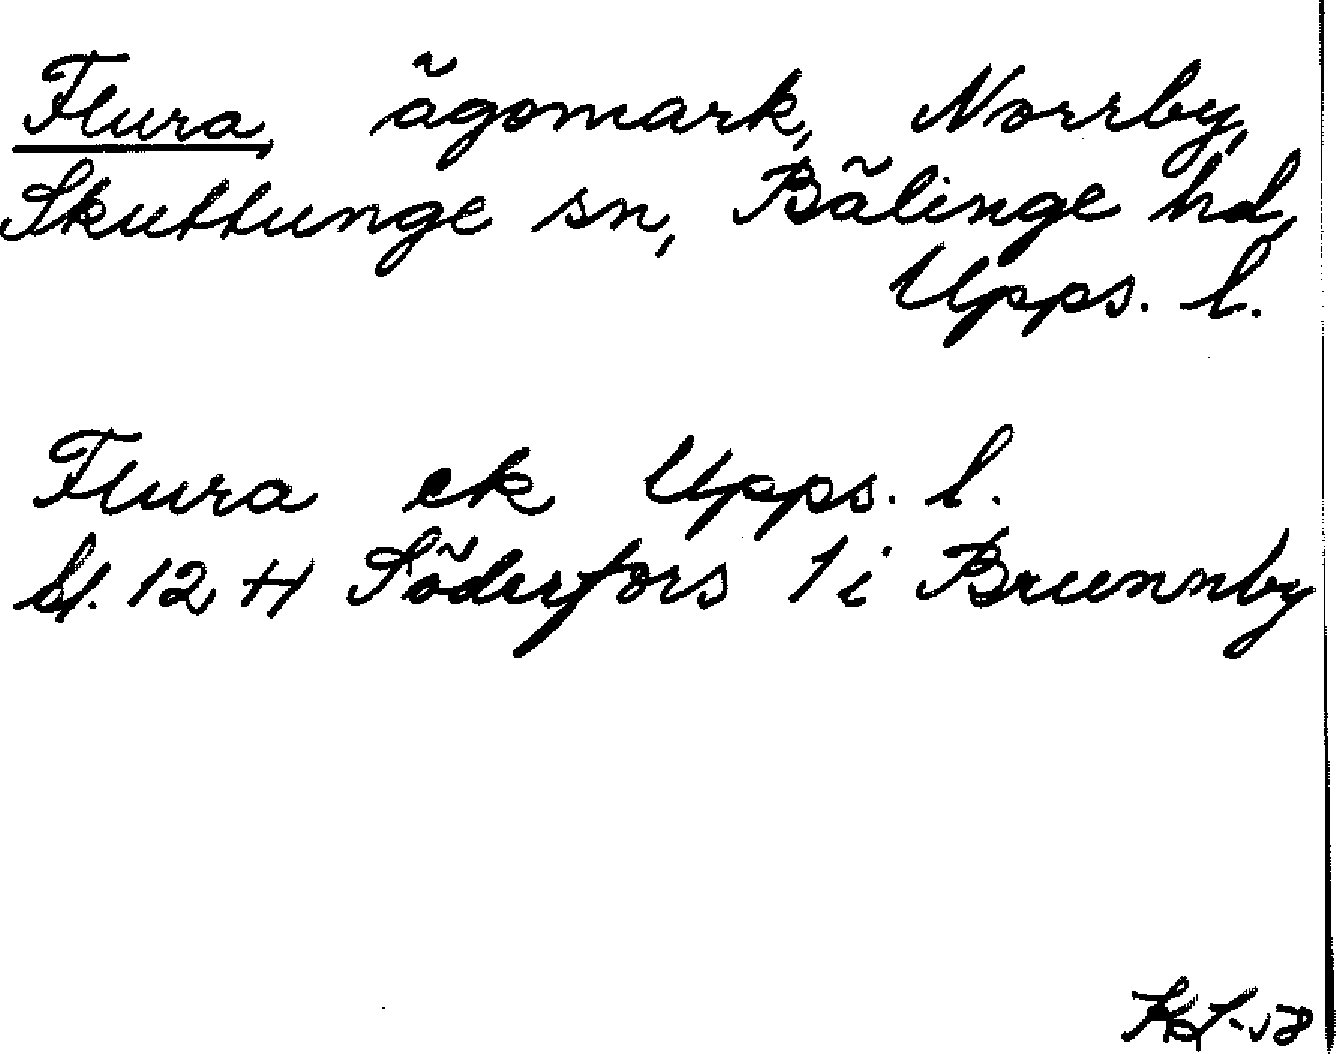 Flura, ägomark, Norrby,
Skuttunge sn, Bälinge hd,
Upps. l.
Flura ek Upps. l.
bl. 12 H Söderfors 1 i Brunnby